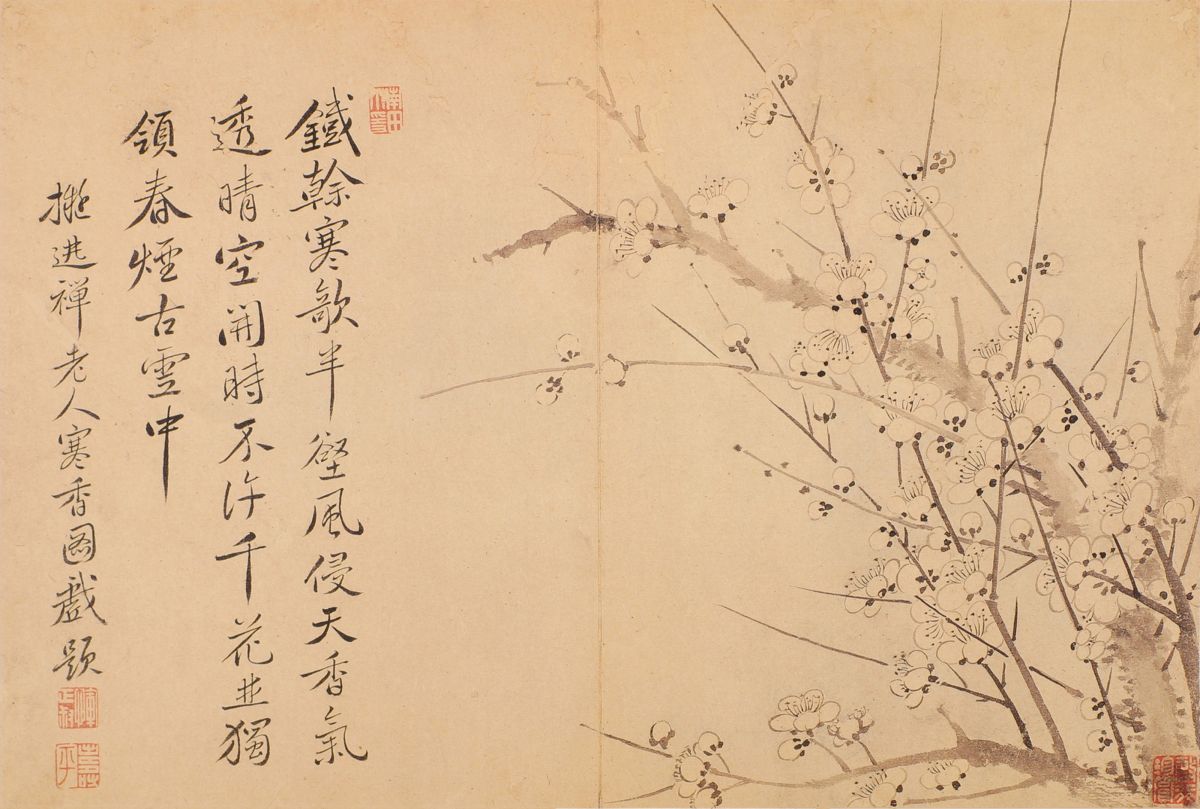 鐵榦寒欹半壑風侵天香氣
透晴空開時不許千花並獨
領春煙古雪中
擬逃禪老人寒香圖戲題
壽平